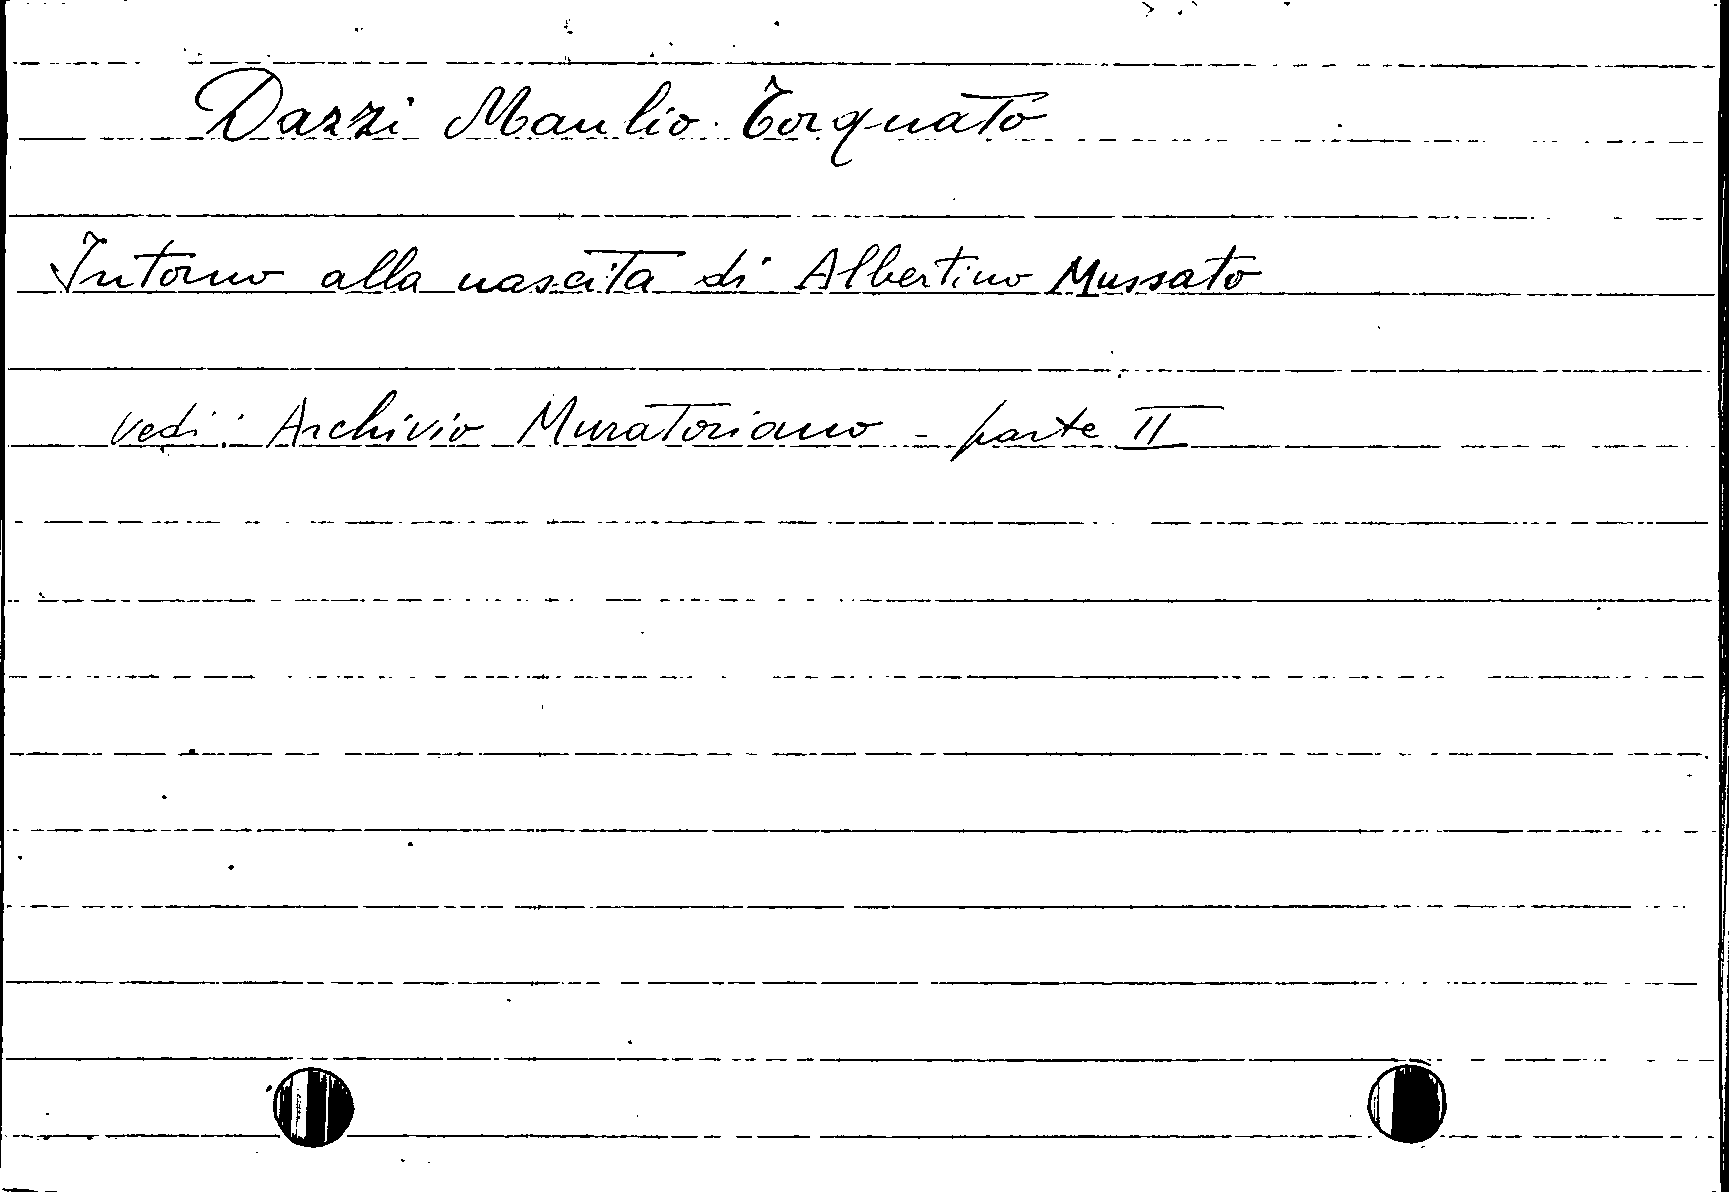 Dazzi Manlio Torquato
Intorno alla nascita di Albertino Mussato
vedi: Archivio Muratoriano - parte II